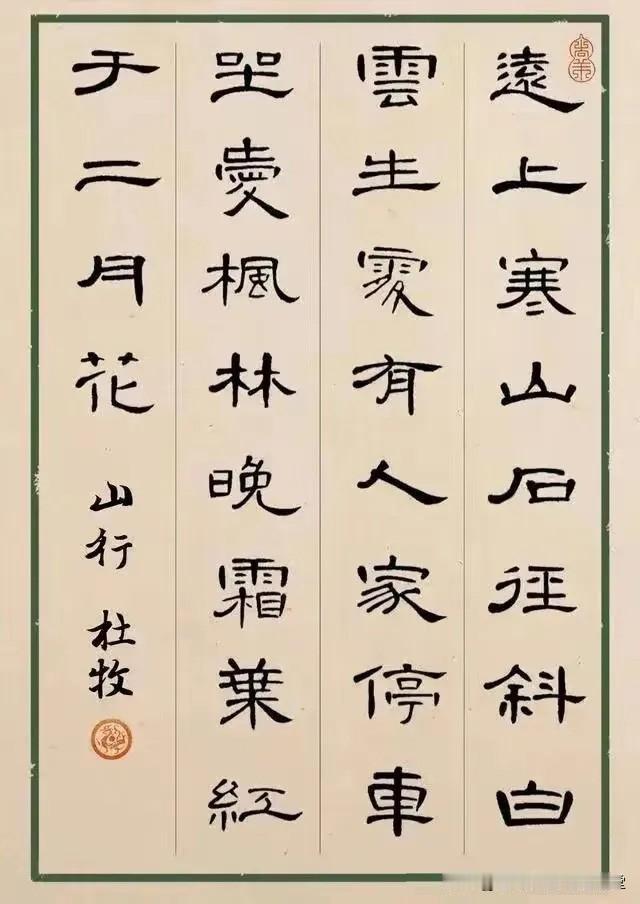 遠上寒山石徑斜白
雲生處有人家停車
坐愛楓林晚霜葉紅
于二月花
山行 杜牧